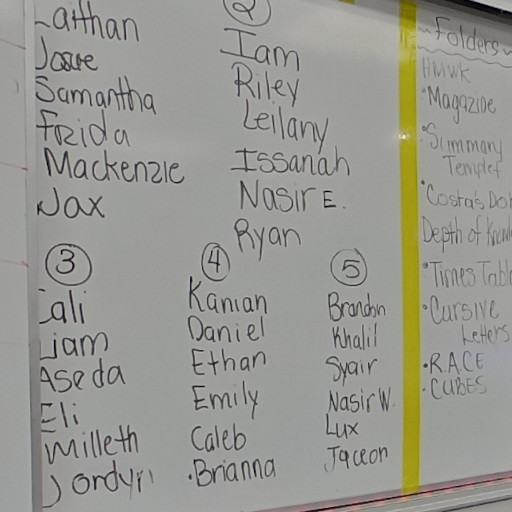 Laithan
Josue
Samantha
Frida
Mackenzie
Jax
2
Iam
Riley
Leilany
Issanah
Nasir E.
Ryan
3
Cali
Liam
Aseda
Eli
Milleth
Jordyn
4
Kamian
Daniel
Ethan
Emily
Caleb
·Brianna
5
Brandon
Khalil
Syair
Nasir W.
Lux
Jaceon
~Folders~
HMWK
·Magazine
·Summary
Templet
·Costa's
Depth of
·Times
·Cursive
Letters
·R.A.C.E
·CUBES